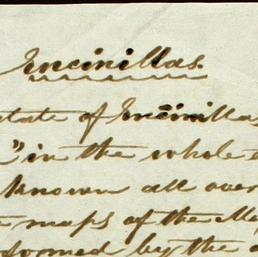 Encinillas.
state of Encinillas
" in the whole
known all over
maps of the
formed by the